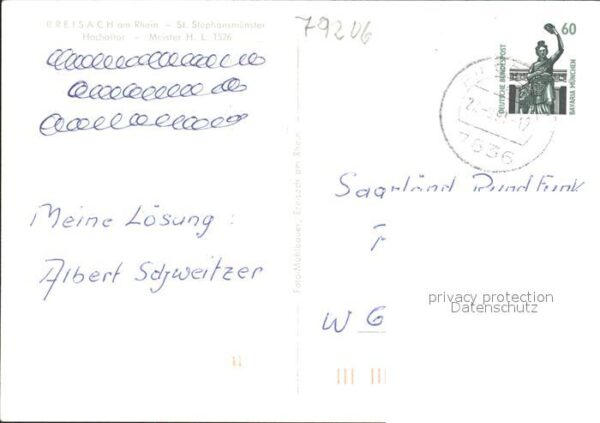 BREISACH am Rhein – St. Stephansmünster
Hochaltar – Meister H. L. 1526
79206
60
DEUTSCHE BUNDESPOST
BAVARIA MÜNCHEN
7636
Foto-Mühlbauer, Breisach am Rhein
Meine Lösung:
Albert Schweitzer
Saarländ Rundfunk
F
W G
privacy protection
Datenschutz